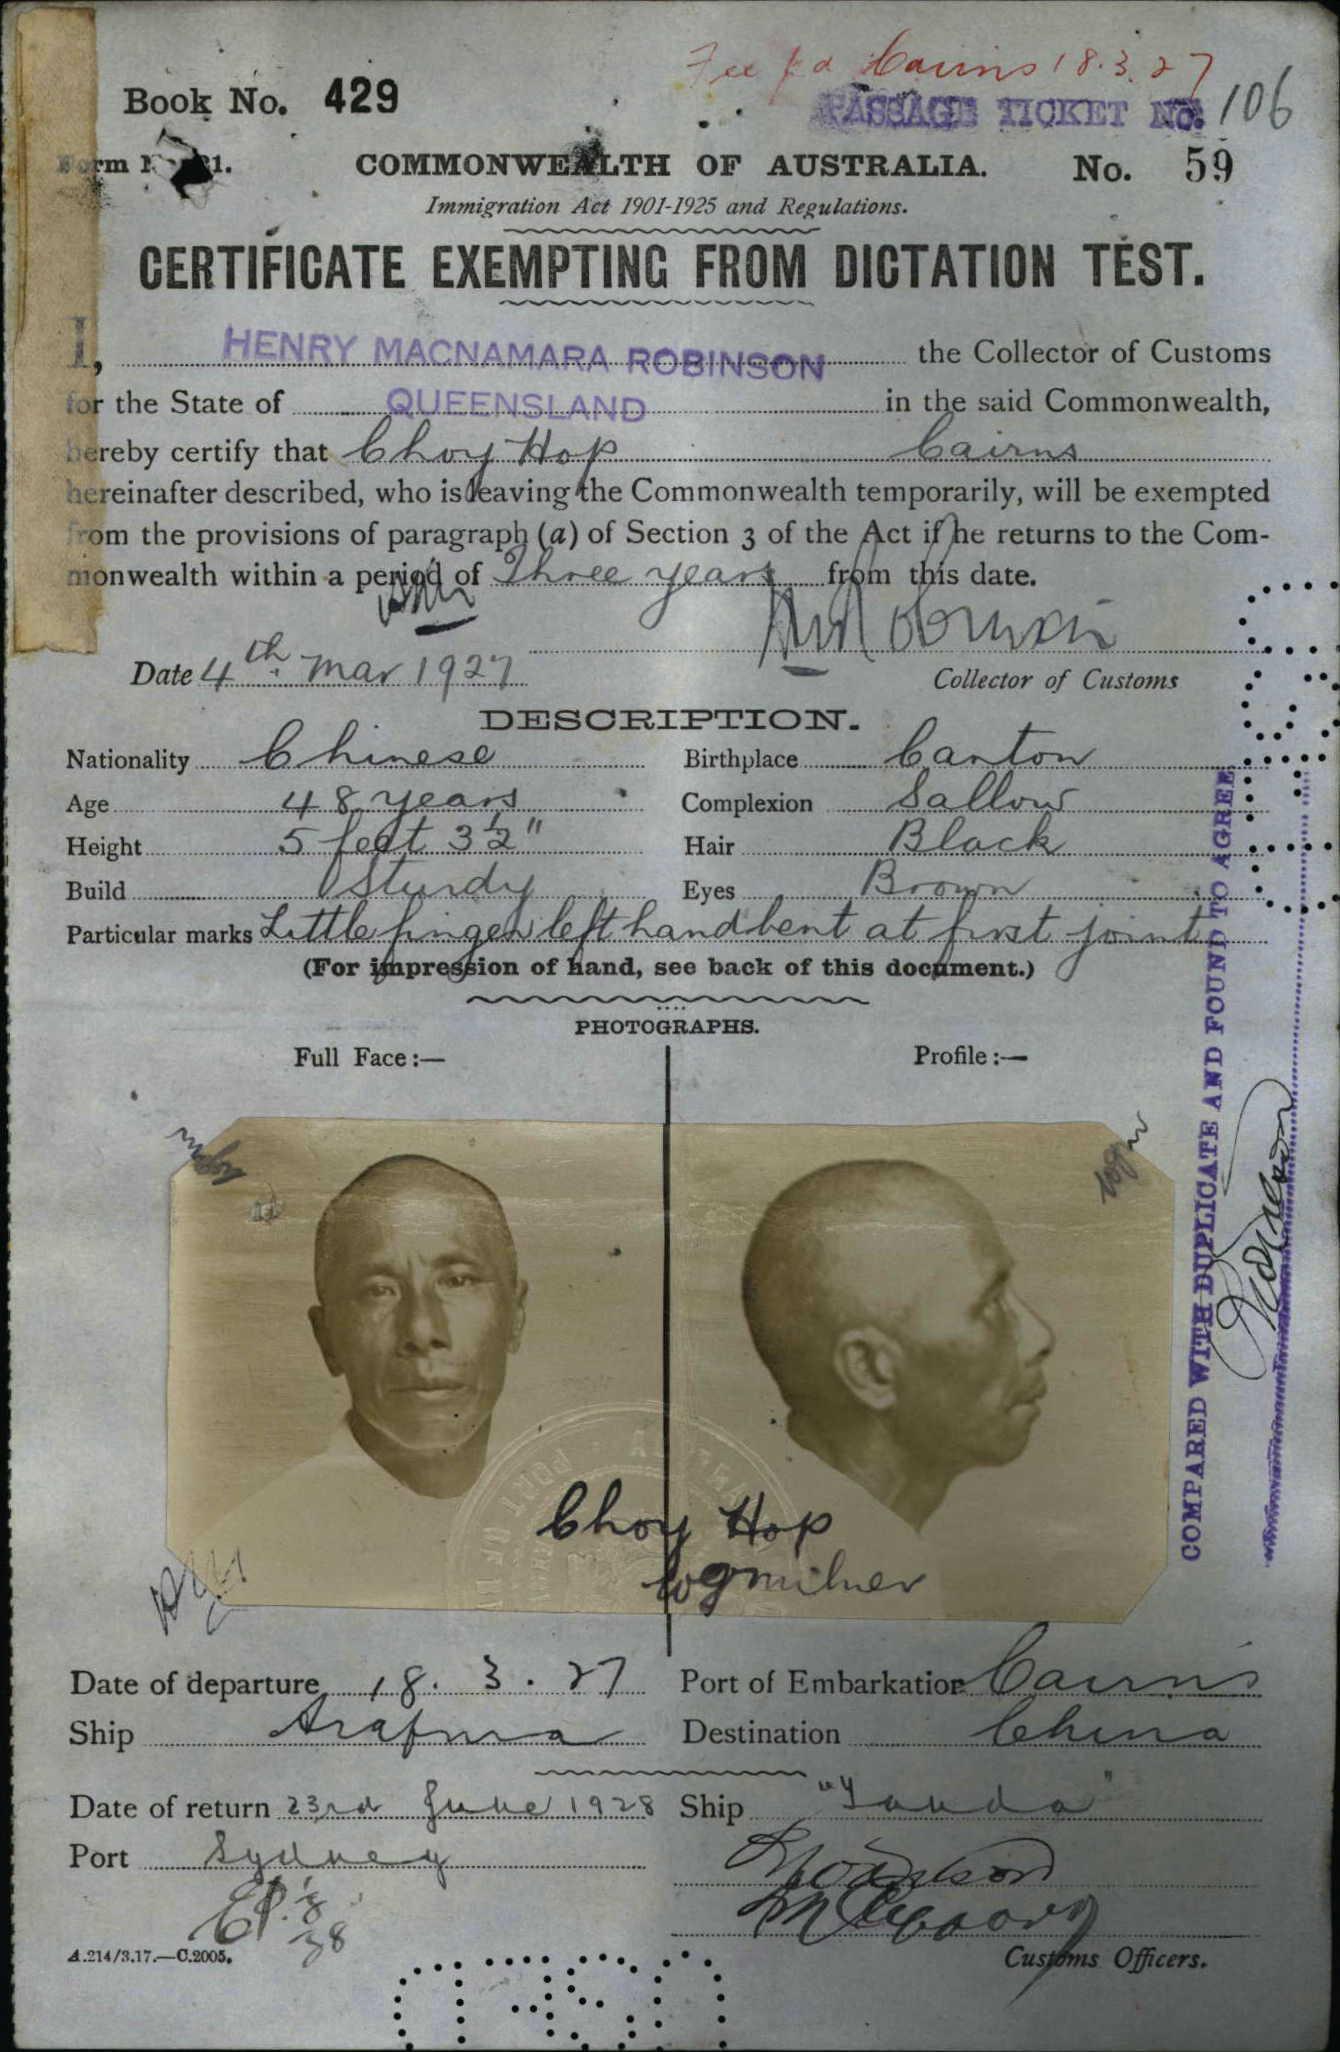 Fee pd Cairns 18.3.27
Book No. 429
PASSAGE TICKET No. 106
COMMONWEALTH OF AUSTRALIA. No. 59
Immigration Act 1901-1925 and Regulations.
CERTIFICATE EXEMPTING FROM DICTATION TEST.
I, HENRY MACNAMARA ROBINSON the Collector of Customs
for the State of QUEENSLAND in the said Commonwealth,
hereby certify that Choy Hop Cairns
hereinafter described, who is leaving the Commonwealth temporarily, will be exempted
from the provisions of paragraph (a) of Section 3 of the Act if he returns to the Com-
monwealth within a period of Three years from this date.
Date 4th Mar 1927
Collector of Customs
DESCRIPTION.
Nationality Chinese Birthplace Canton
Age 48 years Complexion Sallow
Height 5 feet 3½" Hair Black
Build Sturdy Eyes Brown
Particular marks Little finger left hand bent at first joint
(For impression of hand, see back of this document.)
PHOTOGRAPHS.
Full Face:— Profile:—
COMPARED WITH DUPLICATE AND FOUND TO AGREE
Choy Hop
WG Milner
Date of departure 18. 3. 27 Port of Embarkation Cairns
Ship Arafura Destination China
Date of return 23rd June 1928 Ship "Tanda"
Port Sydney
A.214/3.17.—C.2005.
Customs Officers.